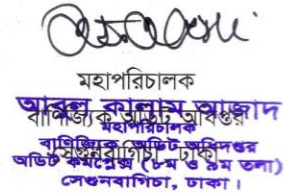 মহাপরিচালক
আবুল কালাম আজাদ
বাণিজ্যিক অডিট অধিদপ্তর
মহাপরিচালক
বাণিজ্যিক অডিট অধিদপ্তর
অডিট কমপ্লেক্স (৮ম ও ৯ম তলা)
সেগুনবাগিচা, ঢাকা
সেগুনবাগিচা, ঢাকা।